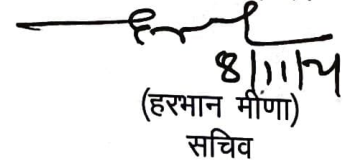 8/11/24
(हरभान मीणा)
सचिव